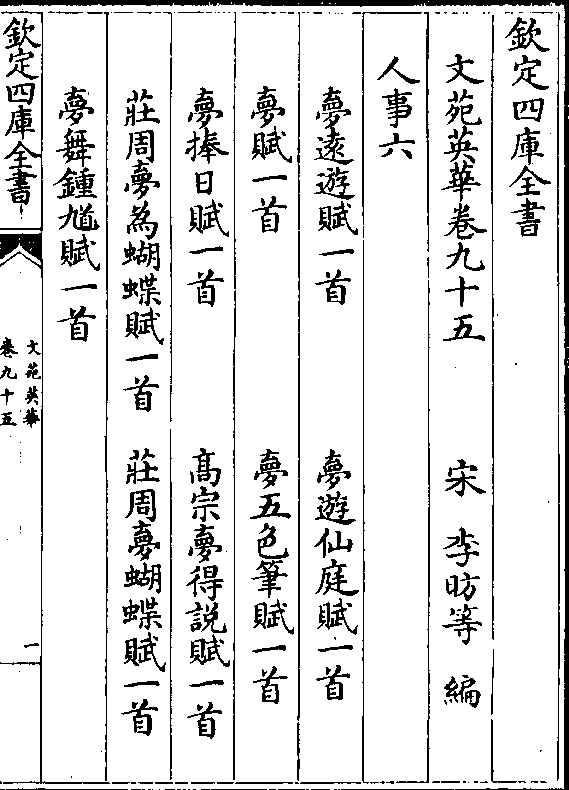 欽定四庫全書
文苑英華卷九十五　宋　李昉等　編
人事六
夢遠遊賦一首　夢遊仙庭賦一首
夢賦一首　夢五色筆賦一首
夢捧日賦一首　髙宗夢得説賦一首
莊周夢為蝴蝶賦一首　莊周夢蝴蝶賦一首
夢舞鍾馗賦一首
欽定四庫全書
文苑英華
卷九十五
一